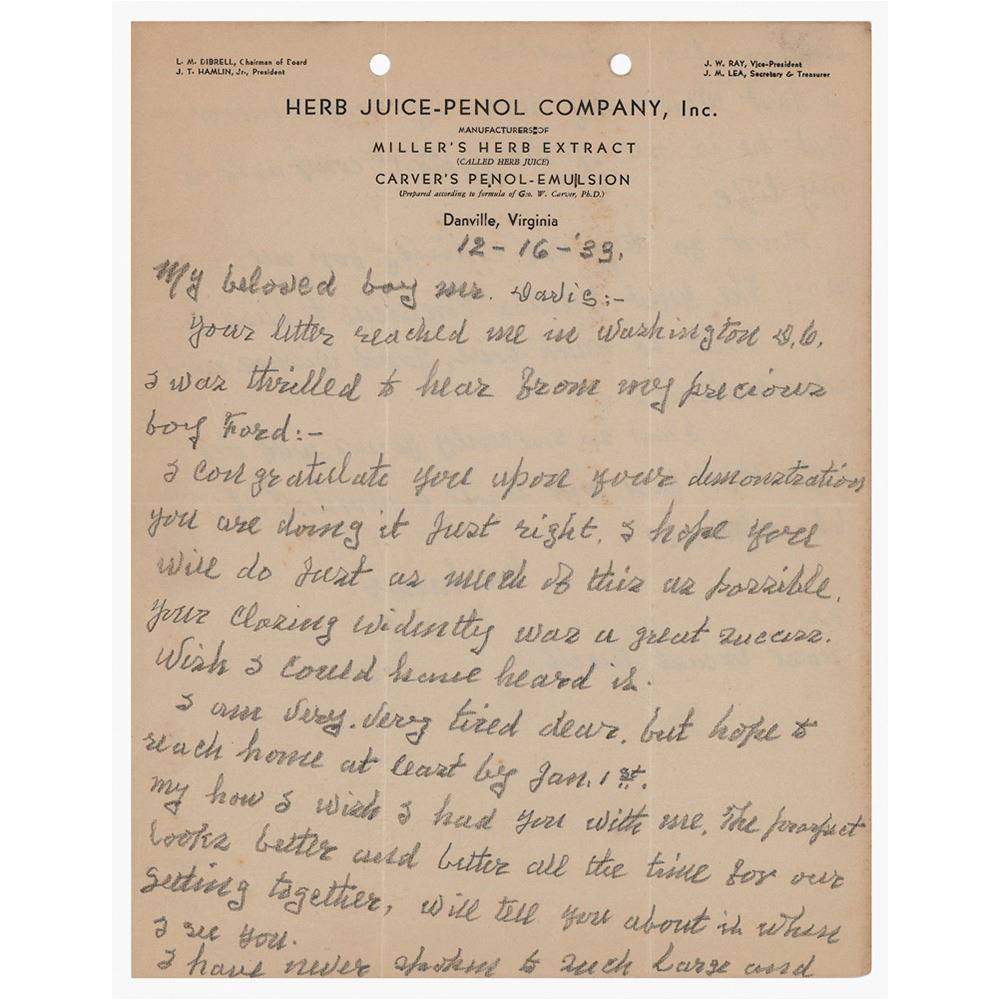 L. M. DIBRELL, Chairman of Board
J. T. HAMLIN, Jr., President
J. W. RAY, Vice-President
J. M. LEA, Secretary & Treasurer
HERB JUICE-PENOL COMPANY, Inc.
MANUFACTURERS OF
MILLER'S HERB EXTRACT
(CALLED HERB JUICE)
CARVER'S PENOL-EMULSION
(Prepared according to formula of Geo. W. Carver, Ph.D.)
Danville, Virginia
12-16-'33.
My beloved boy Mr. Davis:-
Your letter reached me in Washington D.C.
I was thrilled to hear from my precious
boy Ford:-
I congratulate you upon your demonstrations
you are doing it just right. I hope you
will do just as much of this as possible.
Your closing evidently was a great success.
Wish I could have heard it.
I am very, very tired dear, but hope to
reach home at least by Jan. 1st.
My how I wish I had you with me, The prospect
looks better and better all the time for our
getting together, will tell you about it when
I see you.
I have never spoken to such large and